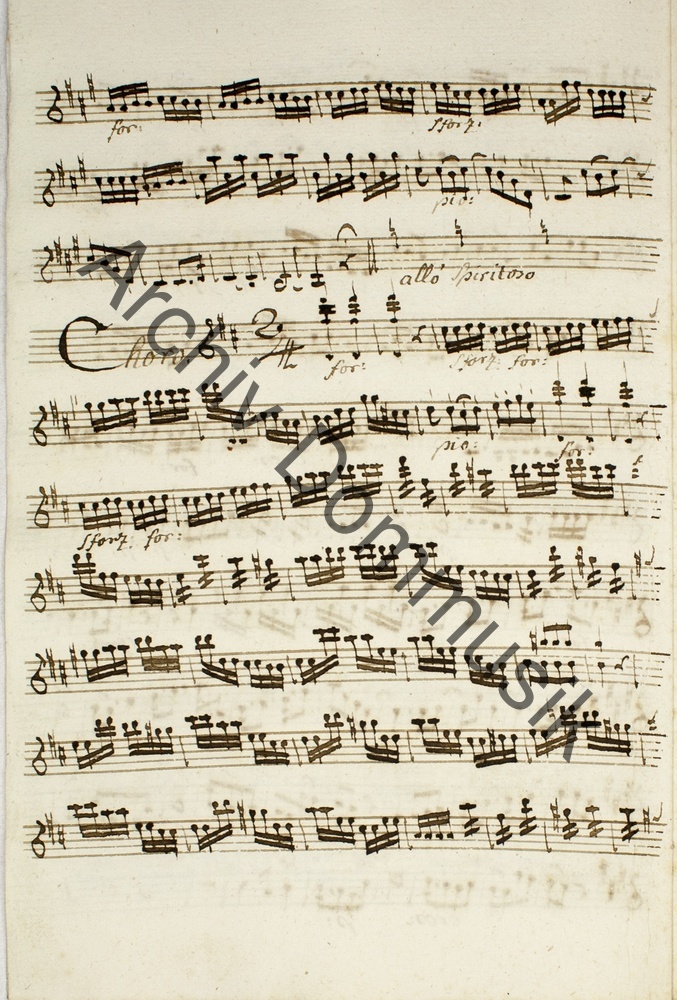 for: sforz:
pio:
allo Spiritoso
Choro 2/4 for: sforz: for:
pio: for:
sforz: for:
Archiv Dommusik